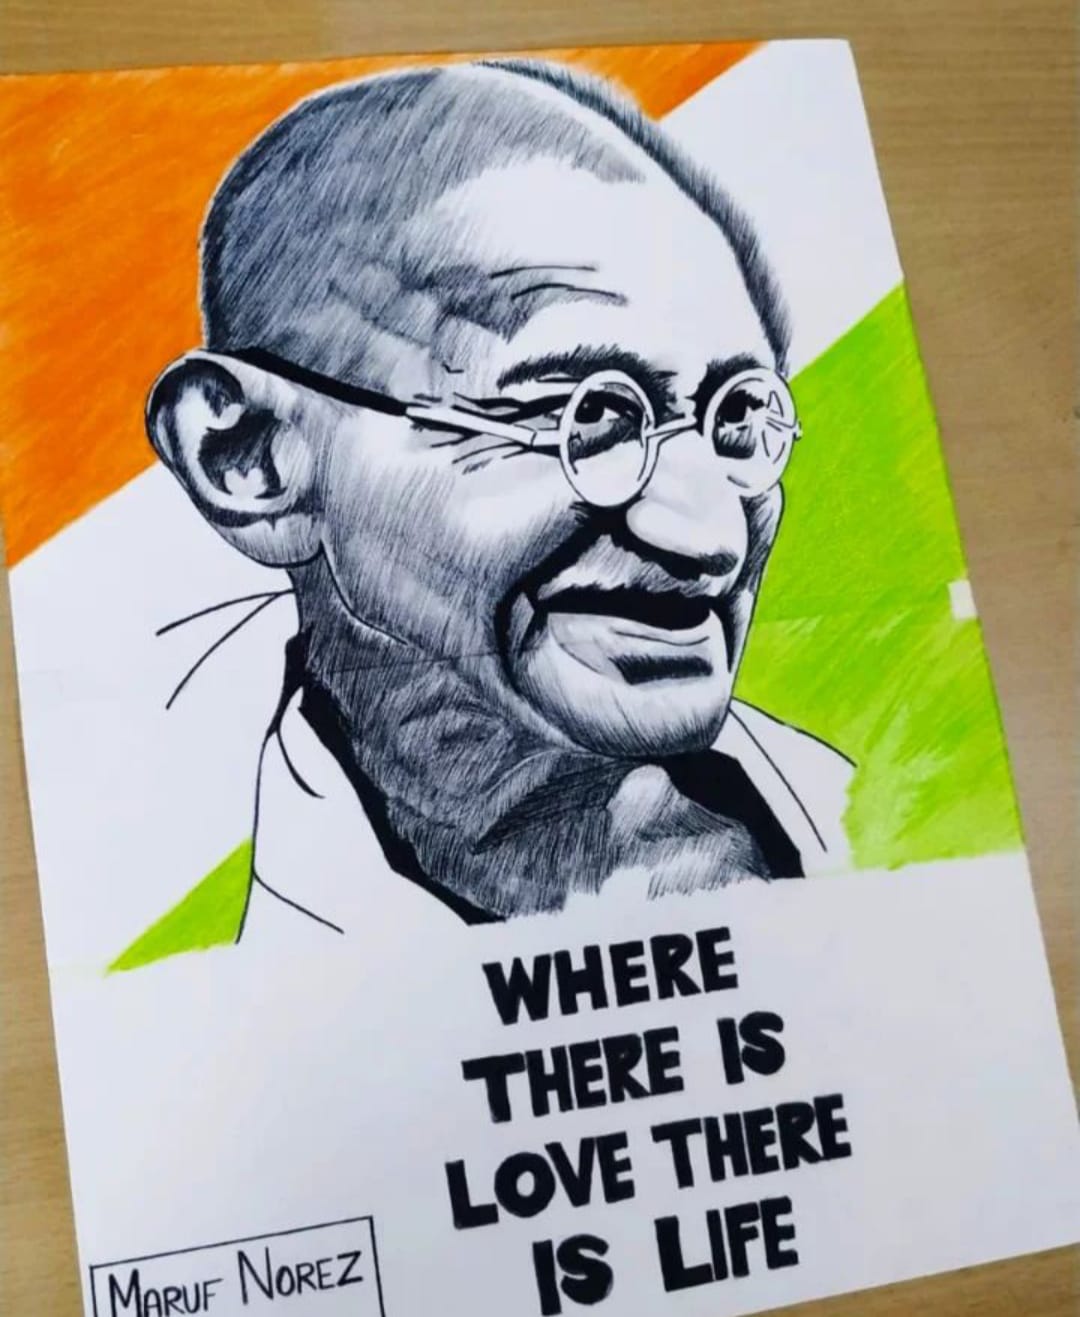 WHERE
THERE IS
LOVE THERE
IS LIFE
MARUF NOREZ